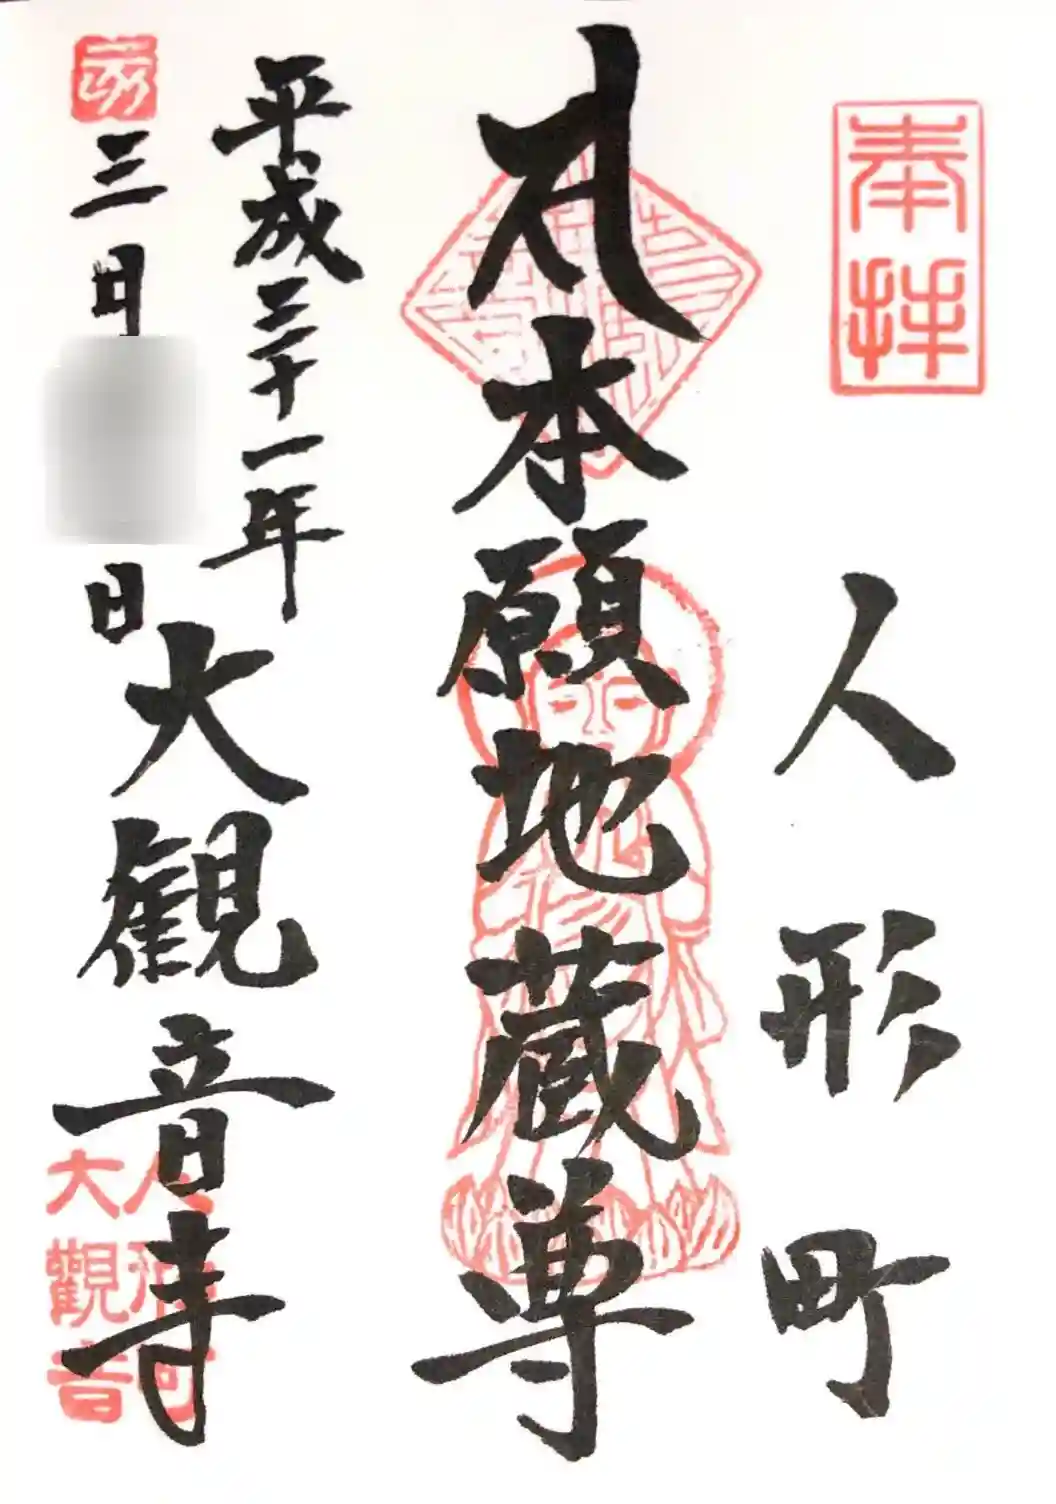 奉拝
人形町
本願地蔵尊
平成三十一年
三月
日
大観音寺
亥
人形町
大觀音